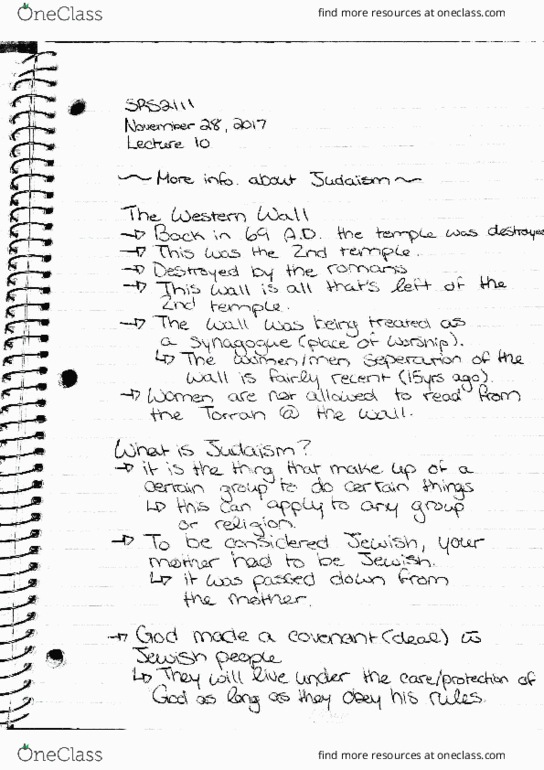 OneClass
find more resources at oneclass.com
SRS2111
November 28, 2017
Lecture 10
~ More info. about Judaism ~
The Western Wall
→ Back in 69 A.D. the temple was destroyed
→ This was the 2nd temple.
→ Destroyed by the romans
→ This wall is all that's left of the
2nd temple.
→ The wall was being treated as
a synagogue (place of worship).
↳ The women/men seperation of the
wall is fairly recent (15yrs ago).
→ Women are not allowed to read from
the Torrah @ the wall.
What is Judaism?
→ it is the thing that make up of a
certain group to do certain things
↳ this can apply to any group
or religion.
→ To be considered Jewish, your
mother had to be Jewish.
↳ it was passed down from
the mother.
→ God made a covenant (deal) w
Jewish people
↳ They will live under the care/protection of
God as long as they obey his rules.
OneClass
find more resources at oneclass.com